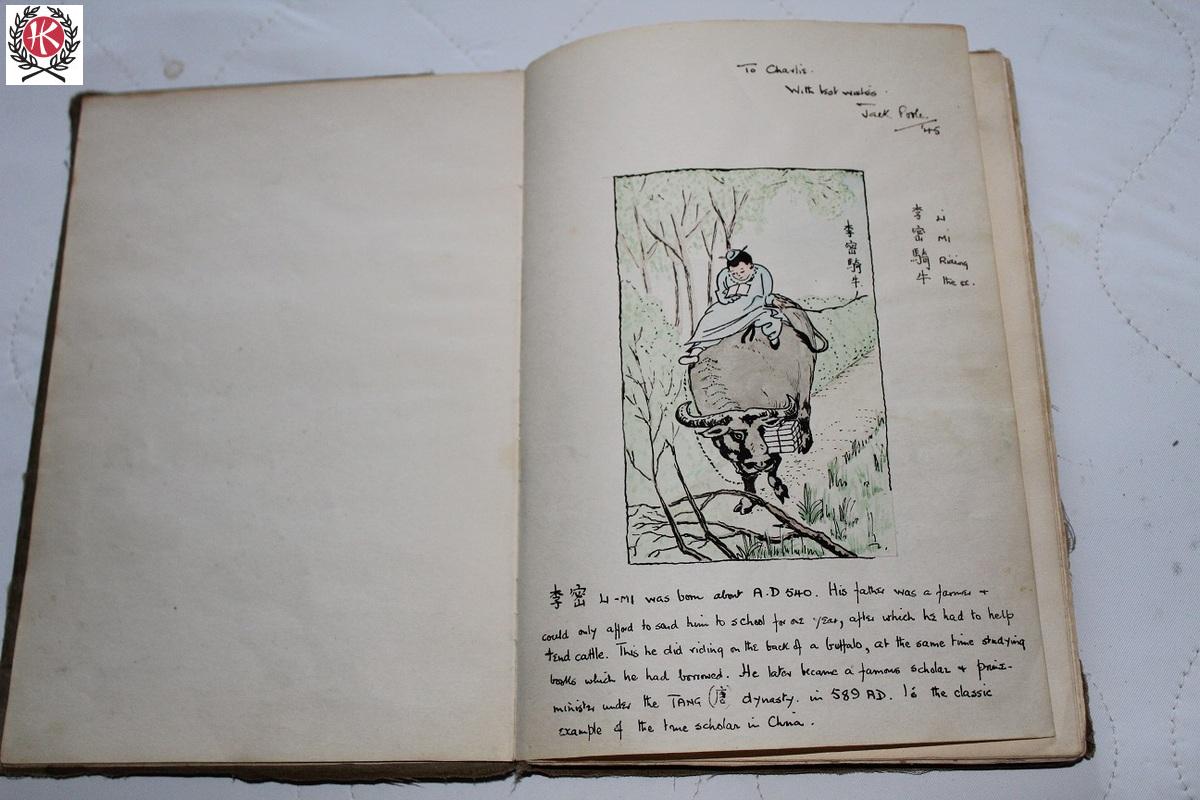 HK
To Charlie.
With best wishes.
Jack Poole
'45
李密騎牛
李密騎牛
Li
Mi
Riding
the ox.
李密 LI-MI was born about A.D 540. His father was a farmer +
could only afford to send him to school for one year, after which he had to help
tend cattle. This he did riding on the back of a buffalo, at the same time studying
books which he had borrowed. He later became a famous scholar + prime-
minister under the TANG (唐) dynasty. in 589 AD. Is the classic
example of the true scholar in China.